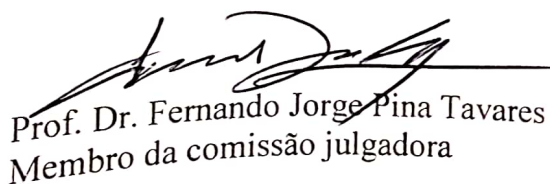 Prof. Dr. Fernando Jorge Pina Tavares
Membro da comissão julgadora